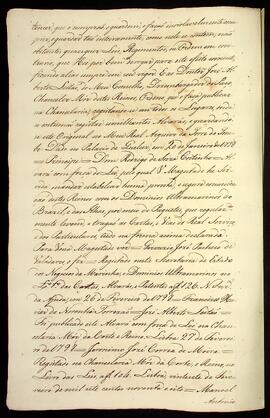 tencer, que o cumpraõ, e guardem e façaõ inviolavelmente cum-
prir, e guardar taõ inteiramente, como nelle se contem, naõ
obstante quaesquer Leis, Regimentos, ou Ordens em con-
trario, que Hei por bem derogar para este effeito somente,
ficando aliás sempre em seu vigor. E ao Doutor José Al-
berto Leitaõ, do Meu Conselho, Dezembargador do Paço,
Chanceller Mór destes Reinos, Ordeno, que o faça publicar
na Chancellaria, registando-se em todos os Lugares, onde
se costumaõ registar semelhantes Alvarás, e guardando-
se este Original no Meu Real Arquivo da Torre do Tom-
bo. Dado no Palacio de Queluz, em de Janeiro de 1798
Principe = Dom Rodrigo de Souza Coutinho = Al-
vará com força de Lei, pelo qual V. Magestade he Ser-
vida mandar estabelecer huma prompta, e segura communica-
çaõ destes Reinos com os Dominios Ultramarinos do
Brazil, e das Ilhas, por meio de Paquetes, que regularmen-
te levem, e tragaõ as Cartas, do Real Serviço,
e dos Particulares, tudo na fórma acima declarada.
Para Vossa Magestade ver = Gervazio José Pacheco de
Valadares, o fez = Registado nesta Secretaria de Estado
dos Negocios da Marinha, e Dominios Ultramarinos no
das Cartas, Alvarás, e Patentes a f. 126. N. S.
da Ajuda, em 26 de Fevereiro de 1798 = Francisco Xa-
vier de Noronha Torrezaõ = José Alberto Leitaõ =
Foi publicado este Alvará com força de Lei na Chancel-
laria Mór da Corte, e Reino. Lisboa 27 de Feverei-
ro de 1798 = Jeronimo José Correa de Moura =
Registado na Chancellaria Mór da Corte, e Reino, no
Livro das Leis a f. 104. Lisboa vinte e sete de Feverei-
ro de mil sete centos noventa e oito = Manoel
Antonio